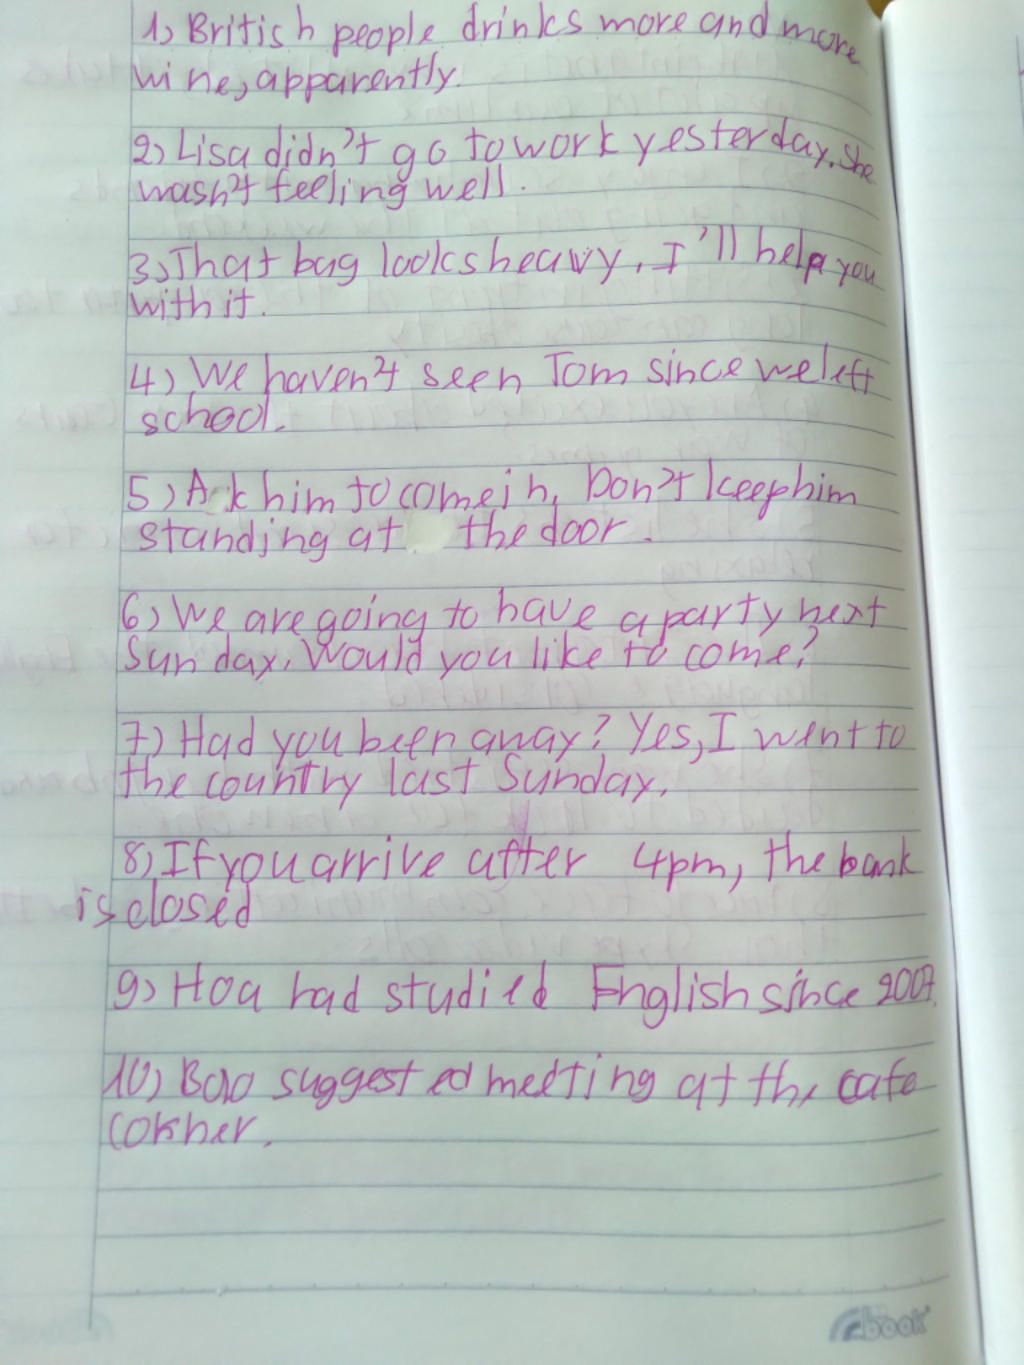 1) British people drinks more and more
wine, apparently.
2) Lisa didn't go to work yesterday. She
wasn't feeling well.
3) That bag looks heavy, I'll help you
with it.
4) We haven't seen Tom since we left
school.
5) A k him to come in, Don't keep him
standing at the door.
6) We are going to have a party next
Sunday. Would you like to come?
7) Had you been away? Yes, I went to
the country last Sunday.
8) If you arrive after 4pm, the bank
is closed
9) Hoa had studied English since 2007.
10) Bao suggested meeting at the cafe
corner.
book